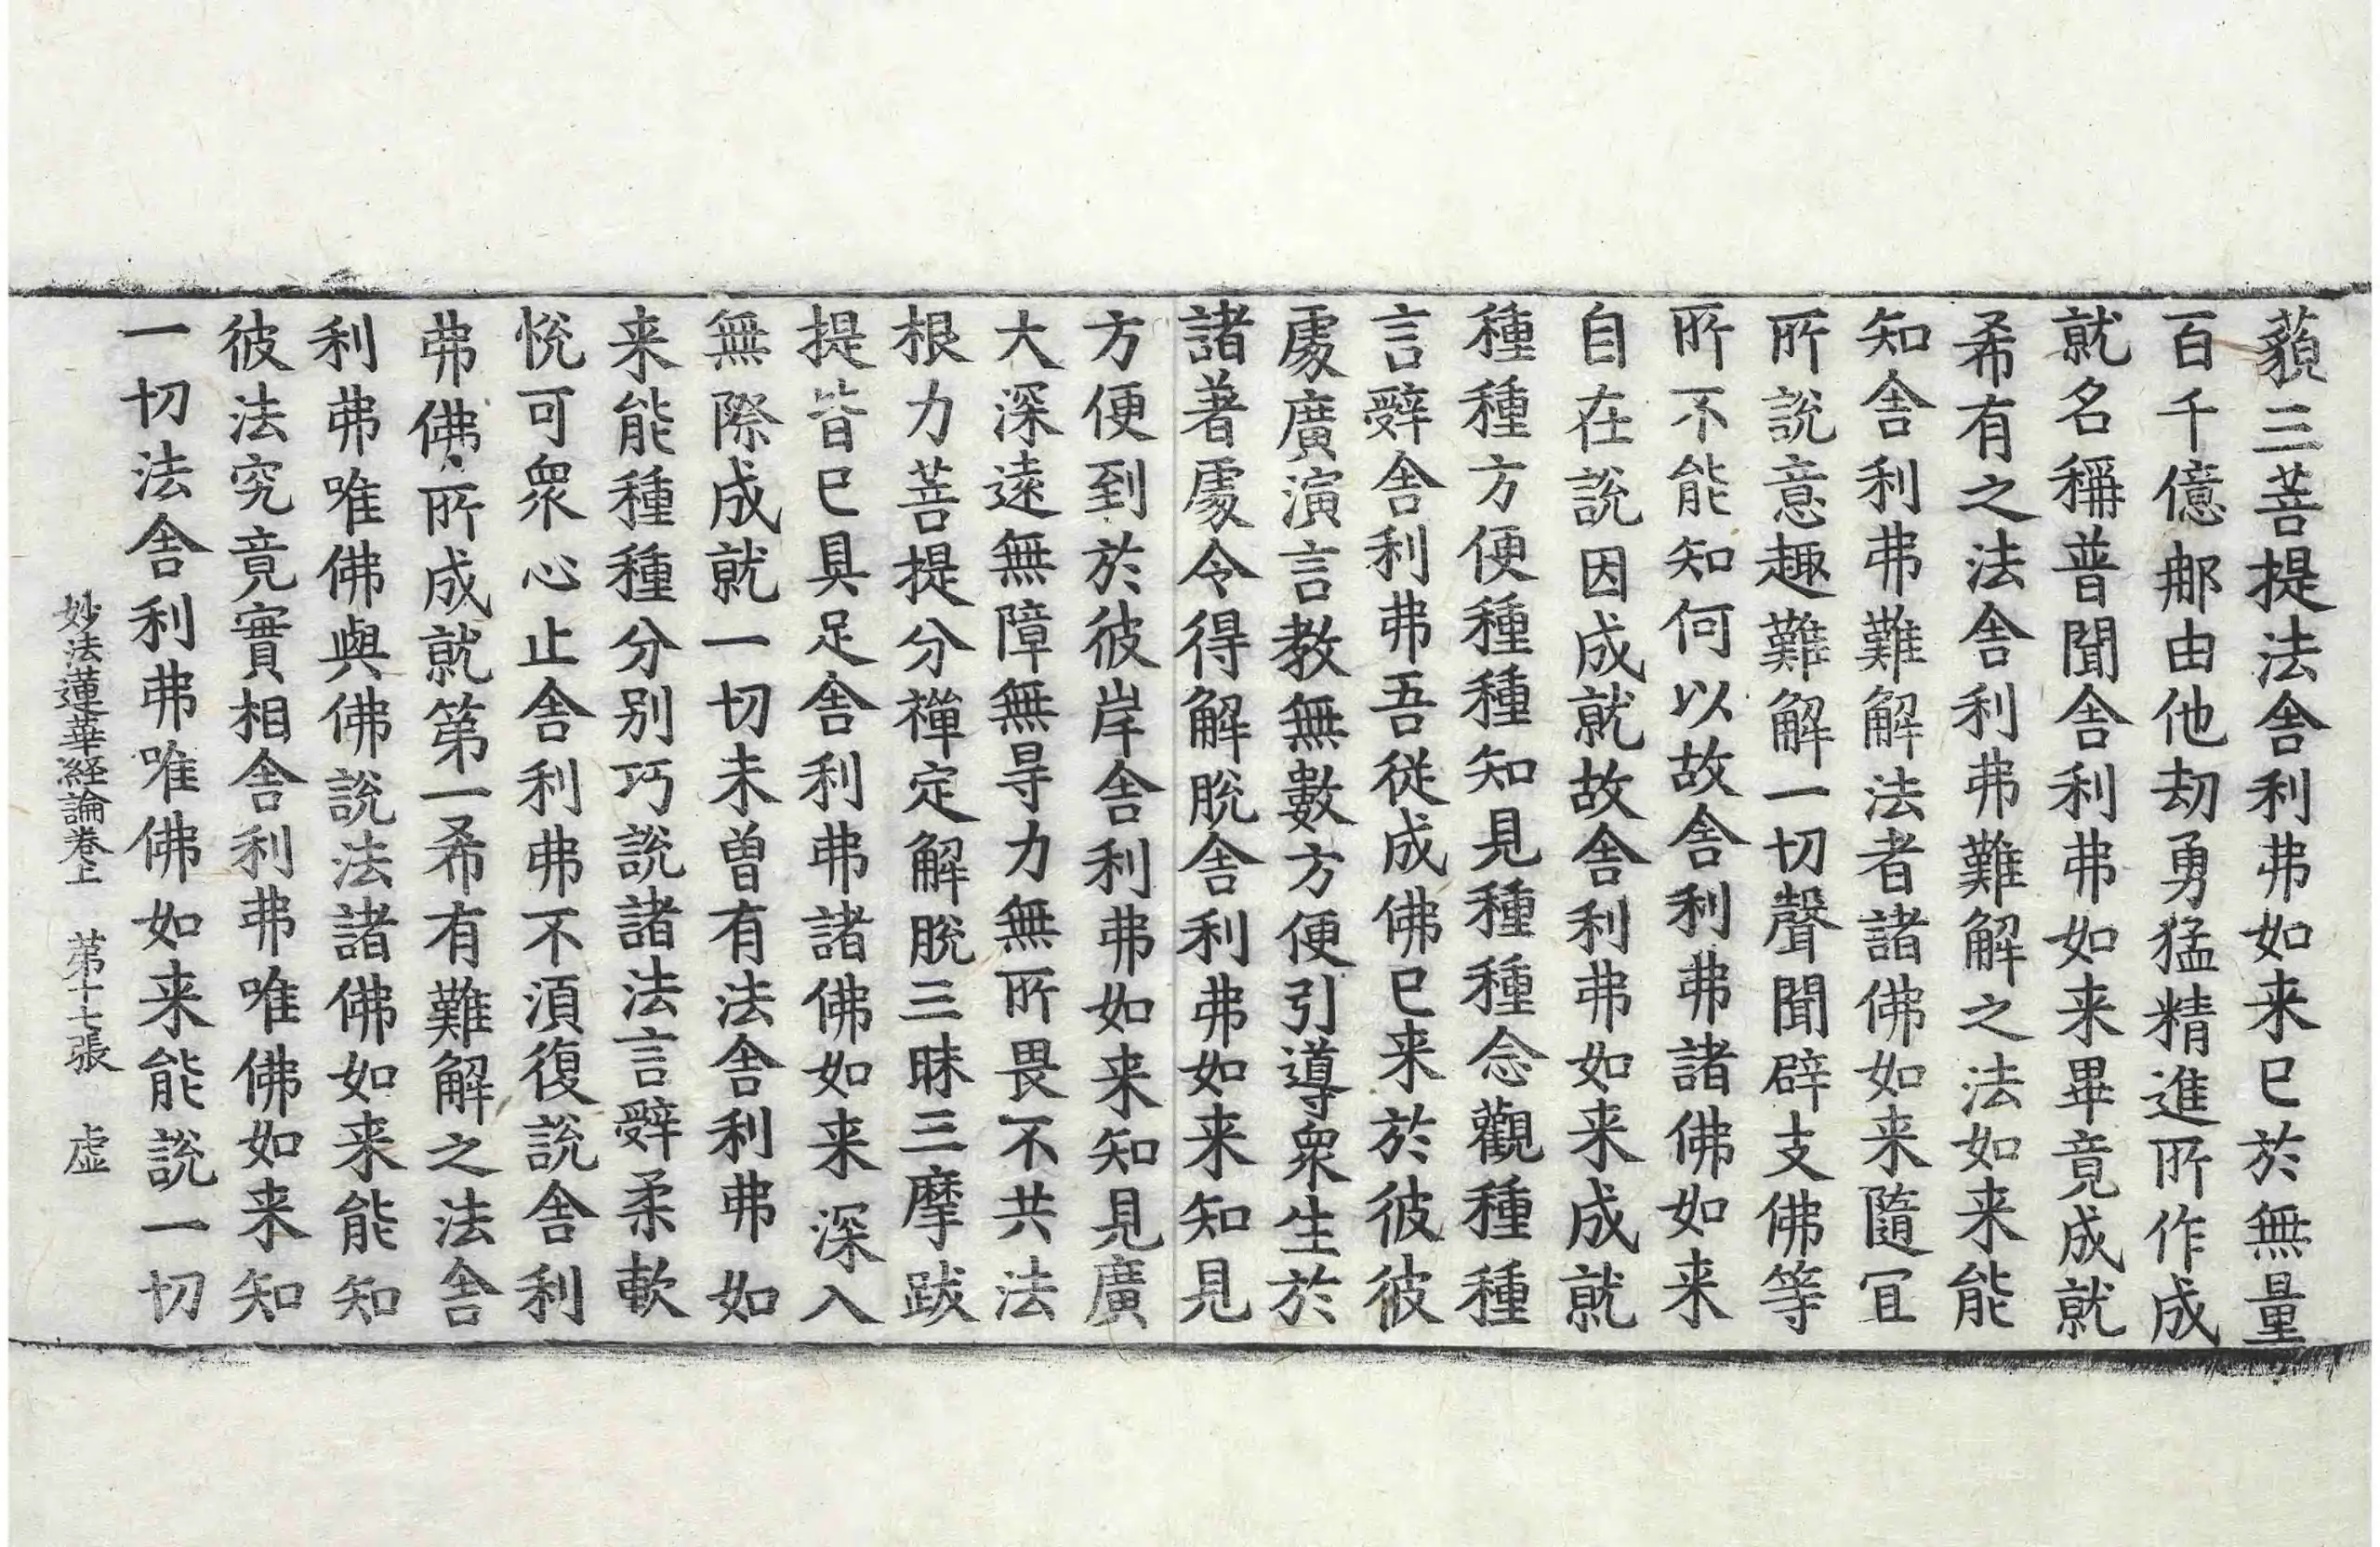 藐三菩提法舍利弗如来已於無量
百千億那由他劫勇猛精進所作成
就名稱普聞舍利弗如来畢竟成就
希有之法舍利弗難解之法如来能
知舍利弗難解法者諸佛如来隨冝
所說意趣難解一切聲聞辟支佛等
所不能知何以故舍利弗諸佛如来
自在說因成就故舍利弗如来成就
種種方便種種知見種種念觀種種
言辭舍利弗吾從成佛已来於彼彼
處廣演言教無數方便引導衆生於
諸著處令得解脫舍利弗如来知見
方便到於彼岸舍利弗如来知見廣
大深遠無障無㝵力無所畏不共法
根力菩提分禪定解脫三昧三摩跋
提皆已具足舍利弗諸佛如来深入
無際成就一切未曾有法舍利弗如
来能種種分別巧說諸法言辭柔軟
悅可衆心止舍利弗不須復說舍利
弗佛所成就第一希有難解之法舍
利弗唯佛與佛說法諸佛如来能知
彼法究竟實相舍利弗唯佛如来知
一切法舍利弗唯佛如来能說一切
妙法蓮華経論卷上 第十七張 虛